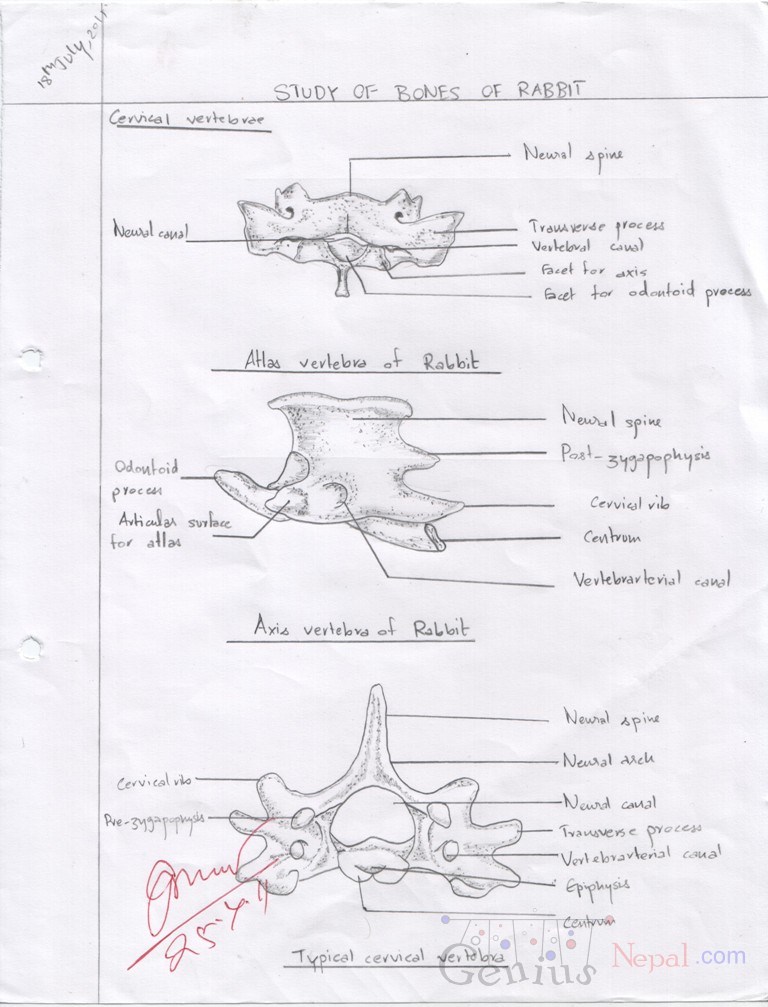 18th July, 2011
STUDY OF BONES OF RABBIT
Cervical vertebrae
Neural spine
Neural canal
Transverse process
Vertebral canal
Facet for axis
Facet for odontoid process
Atlas vertebra of Rabbit
Neural spine
Post-zygapophysis
Odontoid
process
Cervical rib
Articular surface
for atlas
Centrum
Vertebrarterial canal
Axis vertebra of Rabbit
Neural spine
Neural arch
Cervical rib
Neural canal
Pre-zygapophysis
Transverse process
Vertebrarterial canal
Epiphysis
Centrum
Typical cervical vertebra
Genius Nepal.com